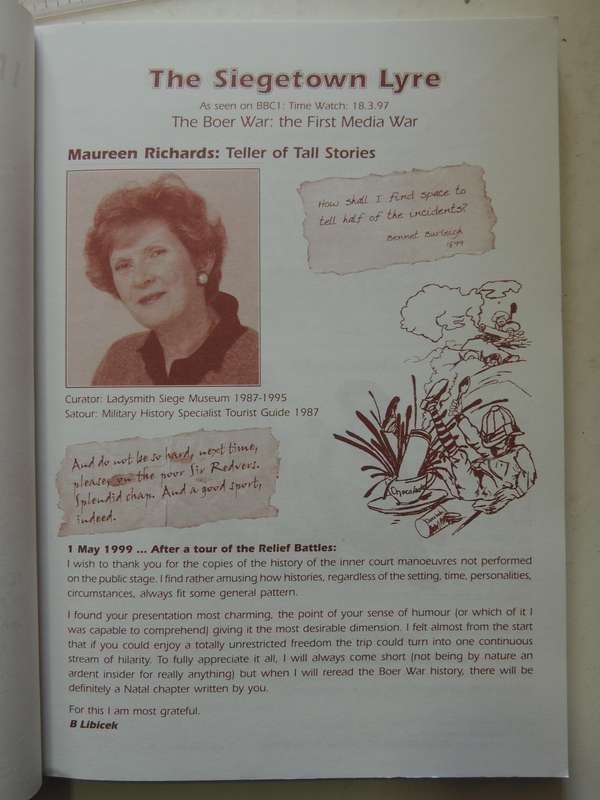 The Siegetown Lyre
As seen on BBC1: Time Watch: 18.3.97
The Boer War: the First Media War
Maureen Richards: Teller of Tall Stories
How shall I find space to
tell half of the incidents?
Bennet Burleigh
1899
Curator: Ladysmith Siege Museum 1987-1995
Satour: Military History Specialist Tourist Guide 1987
And do not be so hard, next time,
please, on the poor Sir Redvers.
Splendid chap. And a good sport,
indeed.
1 May 1999 ... After a tour of the Relief Battles:
I wish to thank you for the copies of the history of the inner court manoeuvres not performed
on the public stage. I find rather amusing how histories, regardless of the setting, time, personalities,
circumstances, always fit some general pattern.
I found your presentation most charming, the point of your sense of humour (or which of it I
was capable to comprehend) giving it the most desirable dimension. I felt almost from the start
that if you could enjoy a totally unrestricted freedom the trip could turn into one continuous
stream of hilarity. To fully appreciate it all, I will always come short (not being by nature an
ardent insider for really anything) but when I will reread the Boer War history, there will be
definitely a Natal chapter written by you.
For this I am most grateful.
B Libicek